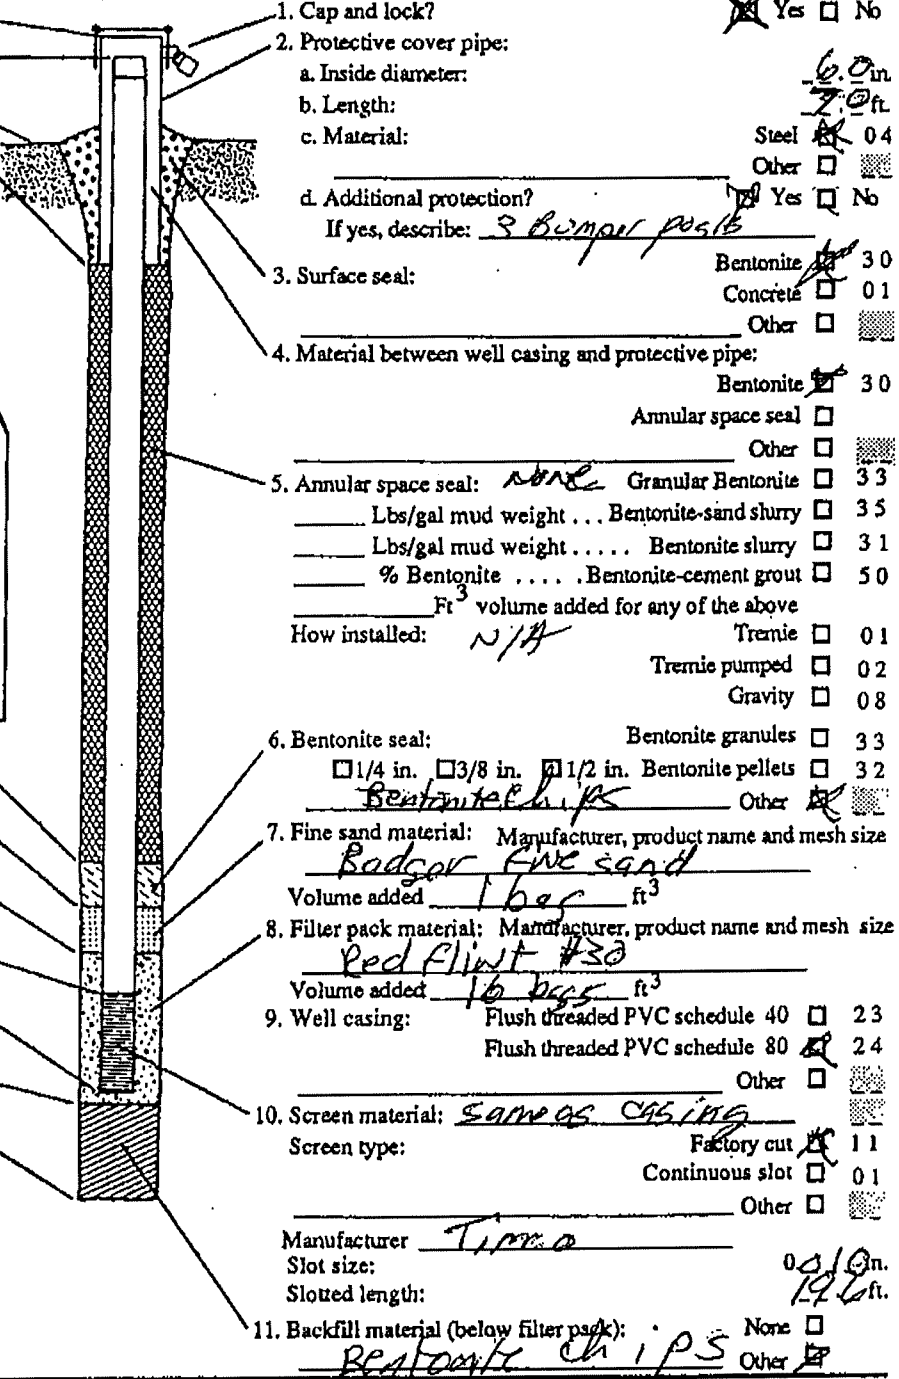 1. Cap and lock? ☒ Yes ☐ No
2. Protective cover pipe:
a. Inside diameter: 6.0 in.
b. Length: 7.0 ft.
c. Material: Steel ☒ 04
Other ☐
d. Additional protection? ☒ Yes ☐ No
If yes, describe: 3 Bumper posts
3. Surface seal: Bentonite ☒ 30
Concrete ☐ 01
Other ☐
4. Material between well casing and protective pipe:
Bentonite ☒ 30
Annular space seal ☐
Other ☐
5. Annular space seal: None Granular Bentonite ☐ 33
Lbs/gal mud weight ... Bentonite-sand slurry ☐ 35
Lbs/gal mud weight ..... Bentonite slurry ☐ 31
% Bentonite ..... Bentonite-cement grout ☐ 50
Ft3 volume added for any of the above
How installed: N/A Tremie ☐ 01
Tremie pumped ☐ 02
Gravity ☐ 08
6. Bentonite seal: Bentonite granules ☐ 33
☐1/4 in. ☐3/8 in. ☒1/2 in. Bentonite pellets ☐ 32
Bentonite Chips Other ☒
7. Fine sand material: Manufacturer, product name and mesh size
Badger fine sand
Volume added 1 bag ft3
8. Filter pack material: Manufacturer, product name and mesh size
Red Flint #30
Volume added 16 bags ft3
9. Well casing: Flush threaded PVC schedule 40 ☐ 23
Flush threaded PVC schedule 80 ☒ 24
Other ☐
10. Screen material: same as casing
Screen type: Factory cut ☒ 11
Continuous slot ☐ 01
Other ☐
Manufacturer Timco
Slot size: 0.010 in.
Slotted length: 19.6 ft.
11. Backfill material (below filter pack): None ☐
Bentonite chips Other ☒